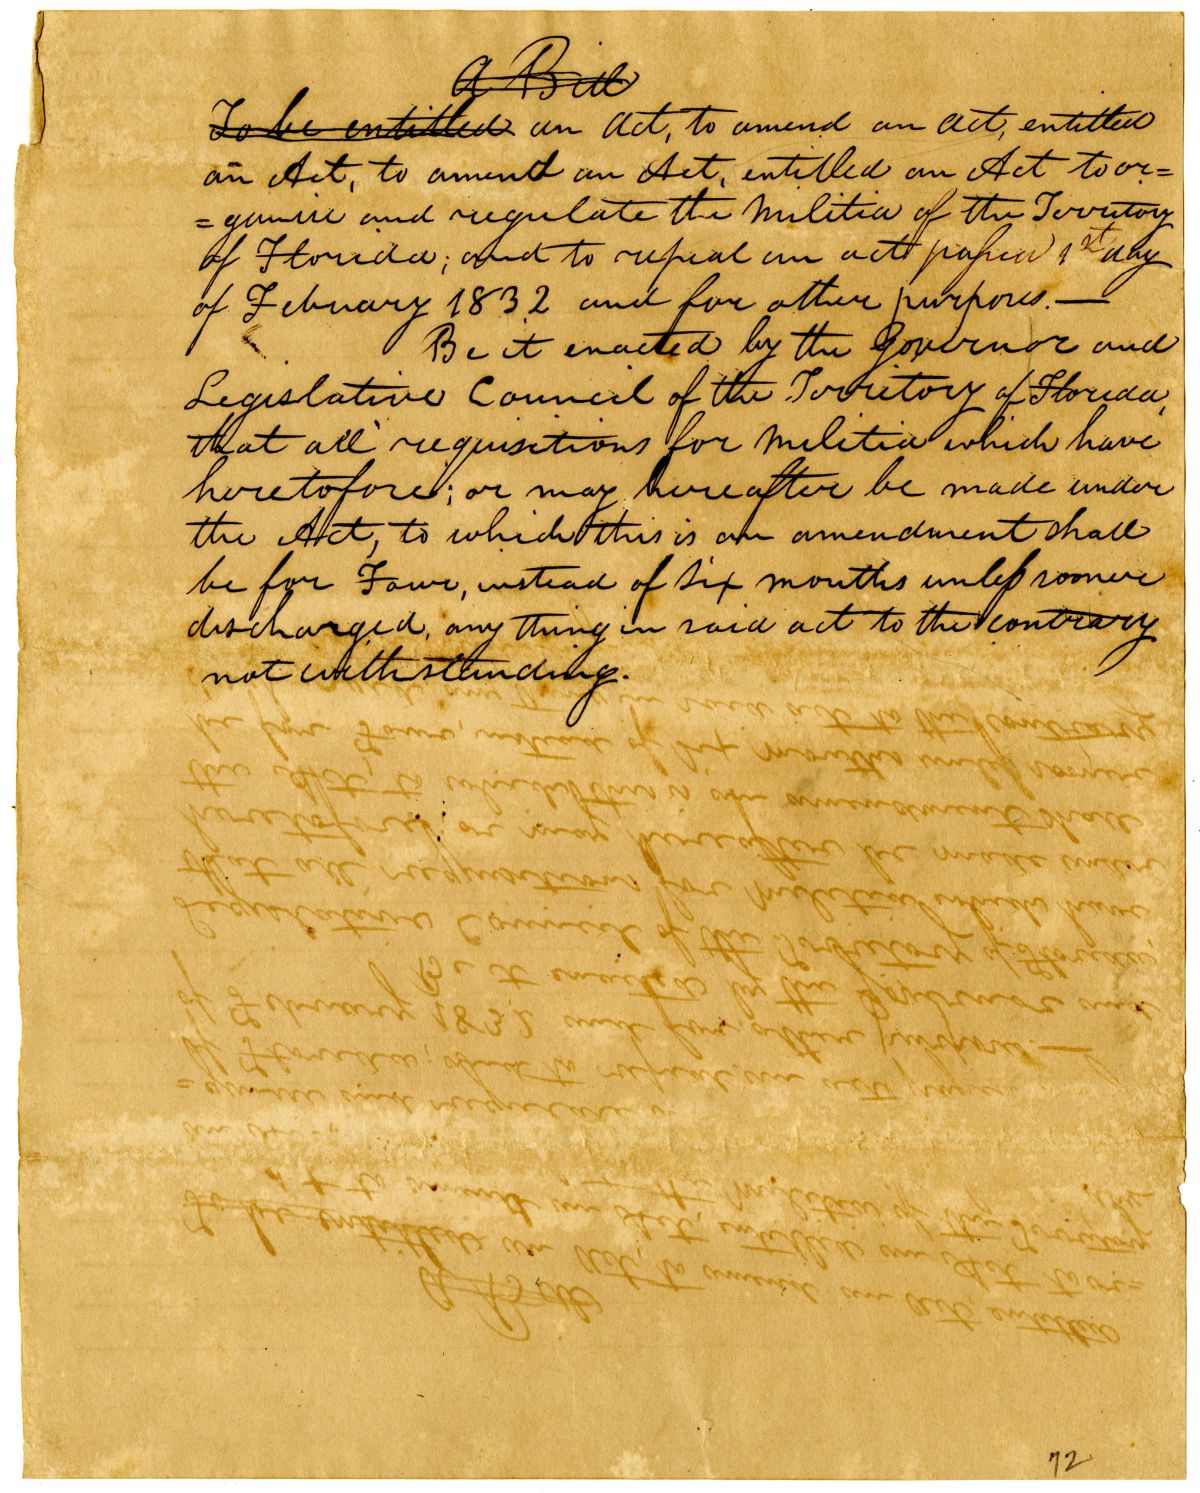 A Bill
To be entitled an Act, to amend an Act, entitled
an Act, to amend an Act, entitled an Act to or=
=ganize and regulate the Militia of the Territory
of Florida; and to repeal an act passed 1st day
of February 1832 and for other purposes.—
Be it enacted by the Governor and
Legislative Council of the Territory of Florida,
that all requisitions for Militia which have
heretofore; or may hereafter be made under
the Act, to which this is an amendment shall
be for Four, instead of Six months unless sooner
discharged, any thing in said act to the contrary
not withstanding.
72